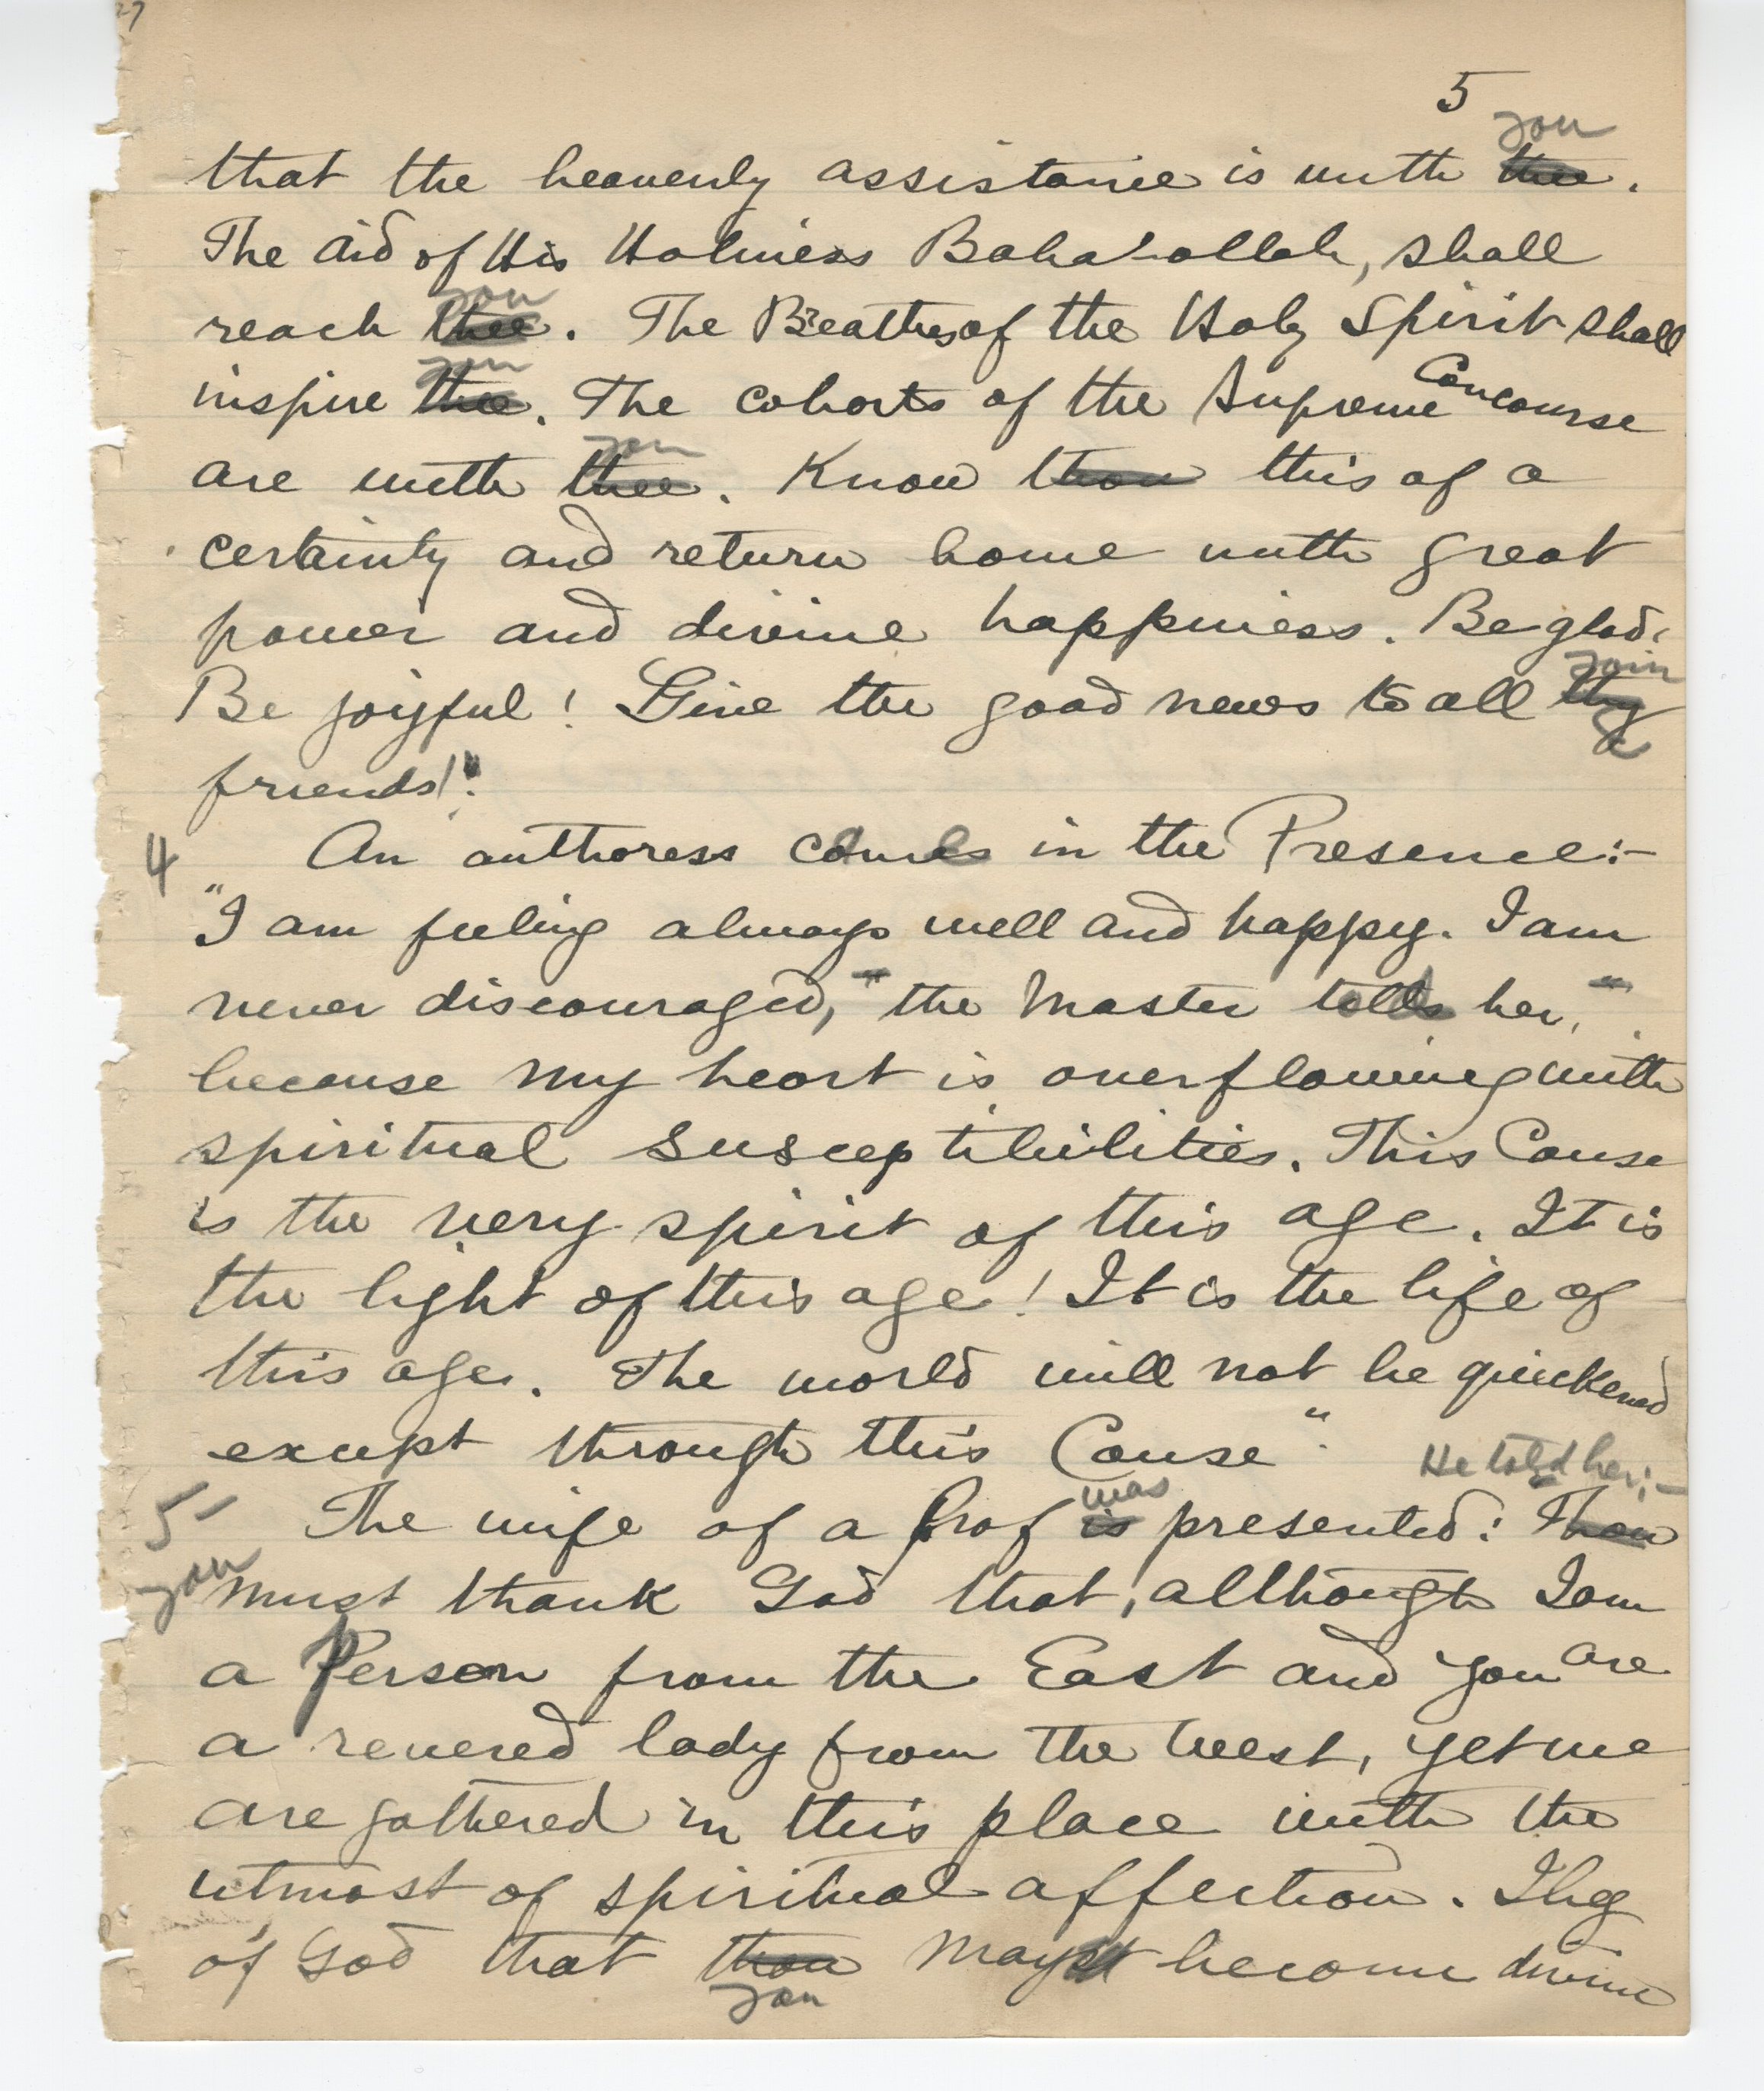 27
5
you
that the heavenly assistance is with thee.
The aid of His Holiness Baha'ollah, shall
you
reach thee. The Breaths of the Holy Spirit shall
you
inspire thee. The cohorts of the Supreme Concourse
you
are with thee. Know thou this of a
certainty and return home with great
power and divine happiness. Be glad.
your
Be joyful! Give the good news to all thy
friends!"
4 An authoress comes in the Presence:-
"I am feeling always well and happy. I am
never discouraged," the Master tells her, "
because my heart is overflowing with
spiritual susceptibilities. This Cause
is the very spirit of this age. It is
the light of this age! It is the life of
this age. The world will not be quickened
except through this Cause".
He told her:-
was
5- The wife of a Prof is presented: Thou
you must thank God that, although I am
a Person from the East and you are
a revered lady from the West, yet we
are gathered in this place with the
utmost of spiritual affection. I beg
of God that thou mayst become divine
you